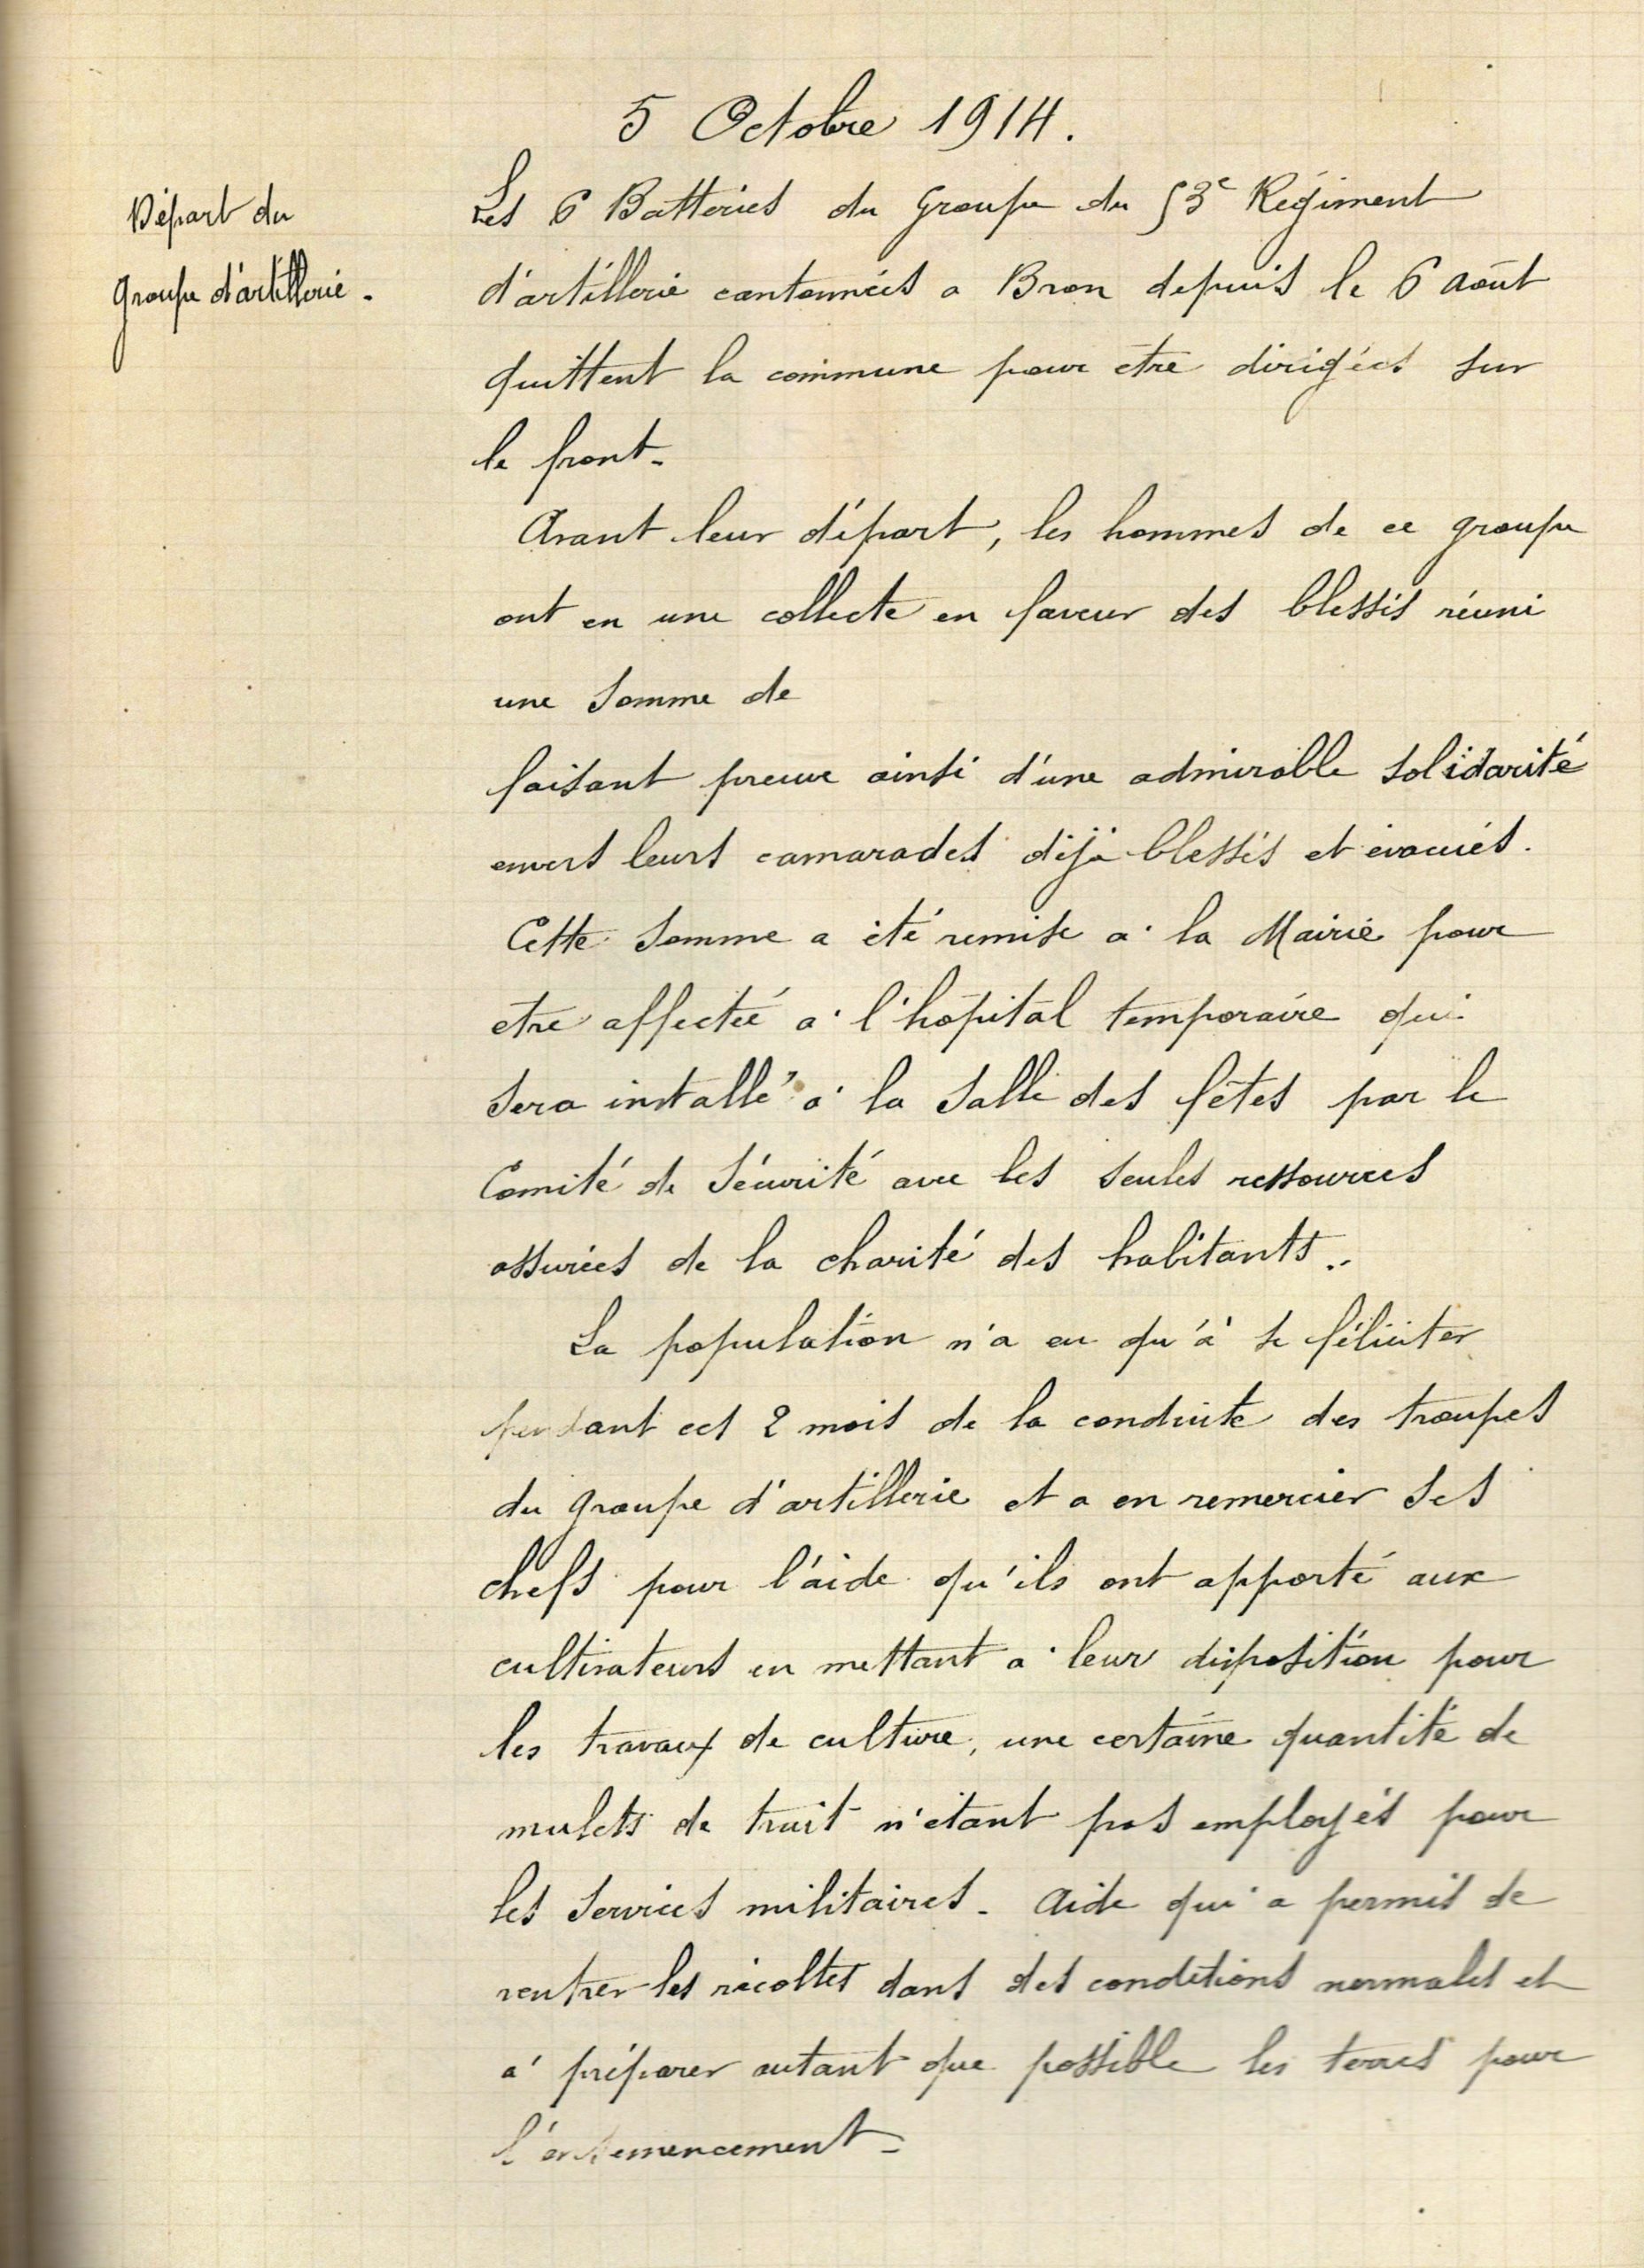 5 Octobre 1914.
Départ du
groupe d'artillerie.
Les 6 Batteries du Groupe du 53e Régiment
d'artillerie cantonnées a Bron depuis le 6 Août
quittent la commune pour être dirigées sur
le front.
Avant leur départ, les hommes de ce groupe
ont en une collecte en faveur des blessés réuni
une somme de
faisant preuve ainsi d'une admirable solidarité
envers leurs camarades déjà blessés et évacués.
Cette somme a été remise à la Mairie pour
etre affectée à l'hôpital temporaire qui
sera installé à la Salle des fêtes par le
Comité de Sécurité avec les seules ressources
assurées de la charité des habitants.
La population n'a eu qu'à se féliciter
pendant ces 2 mois de la conduite des troupes
du groupe d'artillerie et a en remercier ses
chefs pour l'aide qu'ils ont apporté aux
cultivateurs en mettant à leur disposition pour
les travaux de culture, une certaine quantité de
mulets de trait n'étant pas employés pour
les services militaires. Aide qui a permis de
rentrer les récoltes dans des conditions normales et
à préparer autant que possible les terres pour
l'ensemencement.